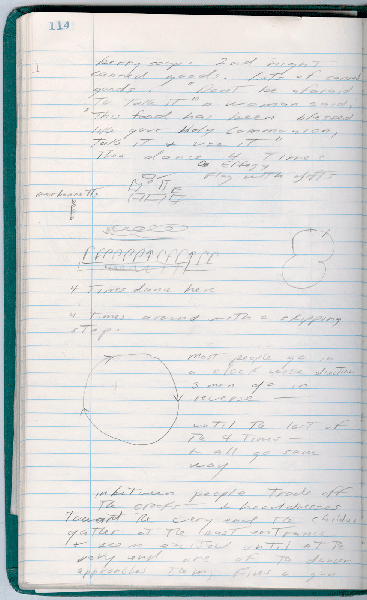 114
berry soup. 2nd night
canned goods. Lots of canned
goods. "Dont be afraid
to take it" a woman said,
"This food has been blessed
like your Holy Communion,
take it & use it"
The dance 4 times
play with
4 Times dance here
4 Times around with a skipping
step.
most people go in
a clock wise direction
3 men go in
reverse —
until the last of
the 4 times —
all go same
way
inbetween people trade off
the
Toward the very end the children
gather at the east entrance
+ seem excited until at the
very end one of the dancers
approaches them, fires a gun